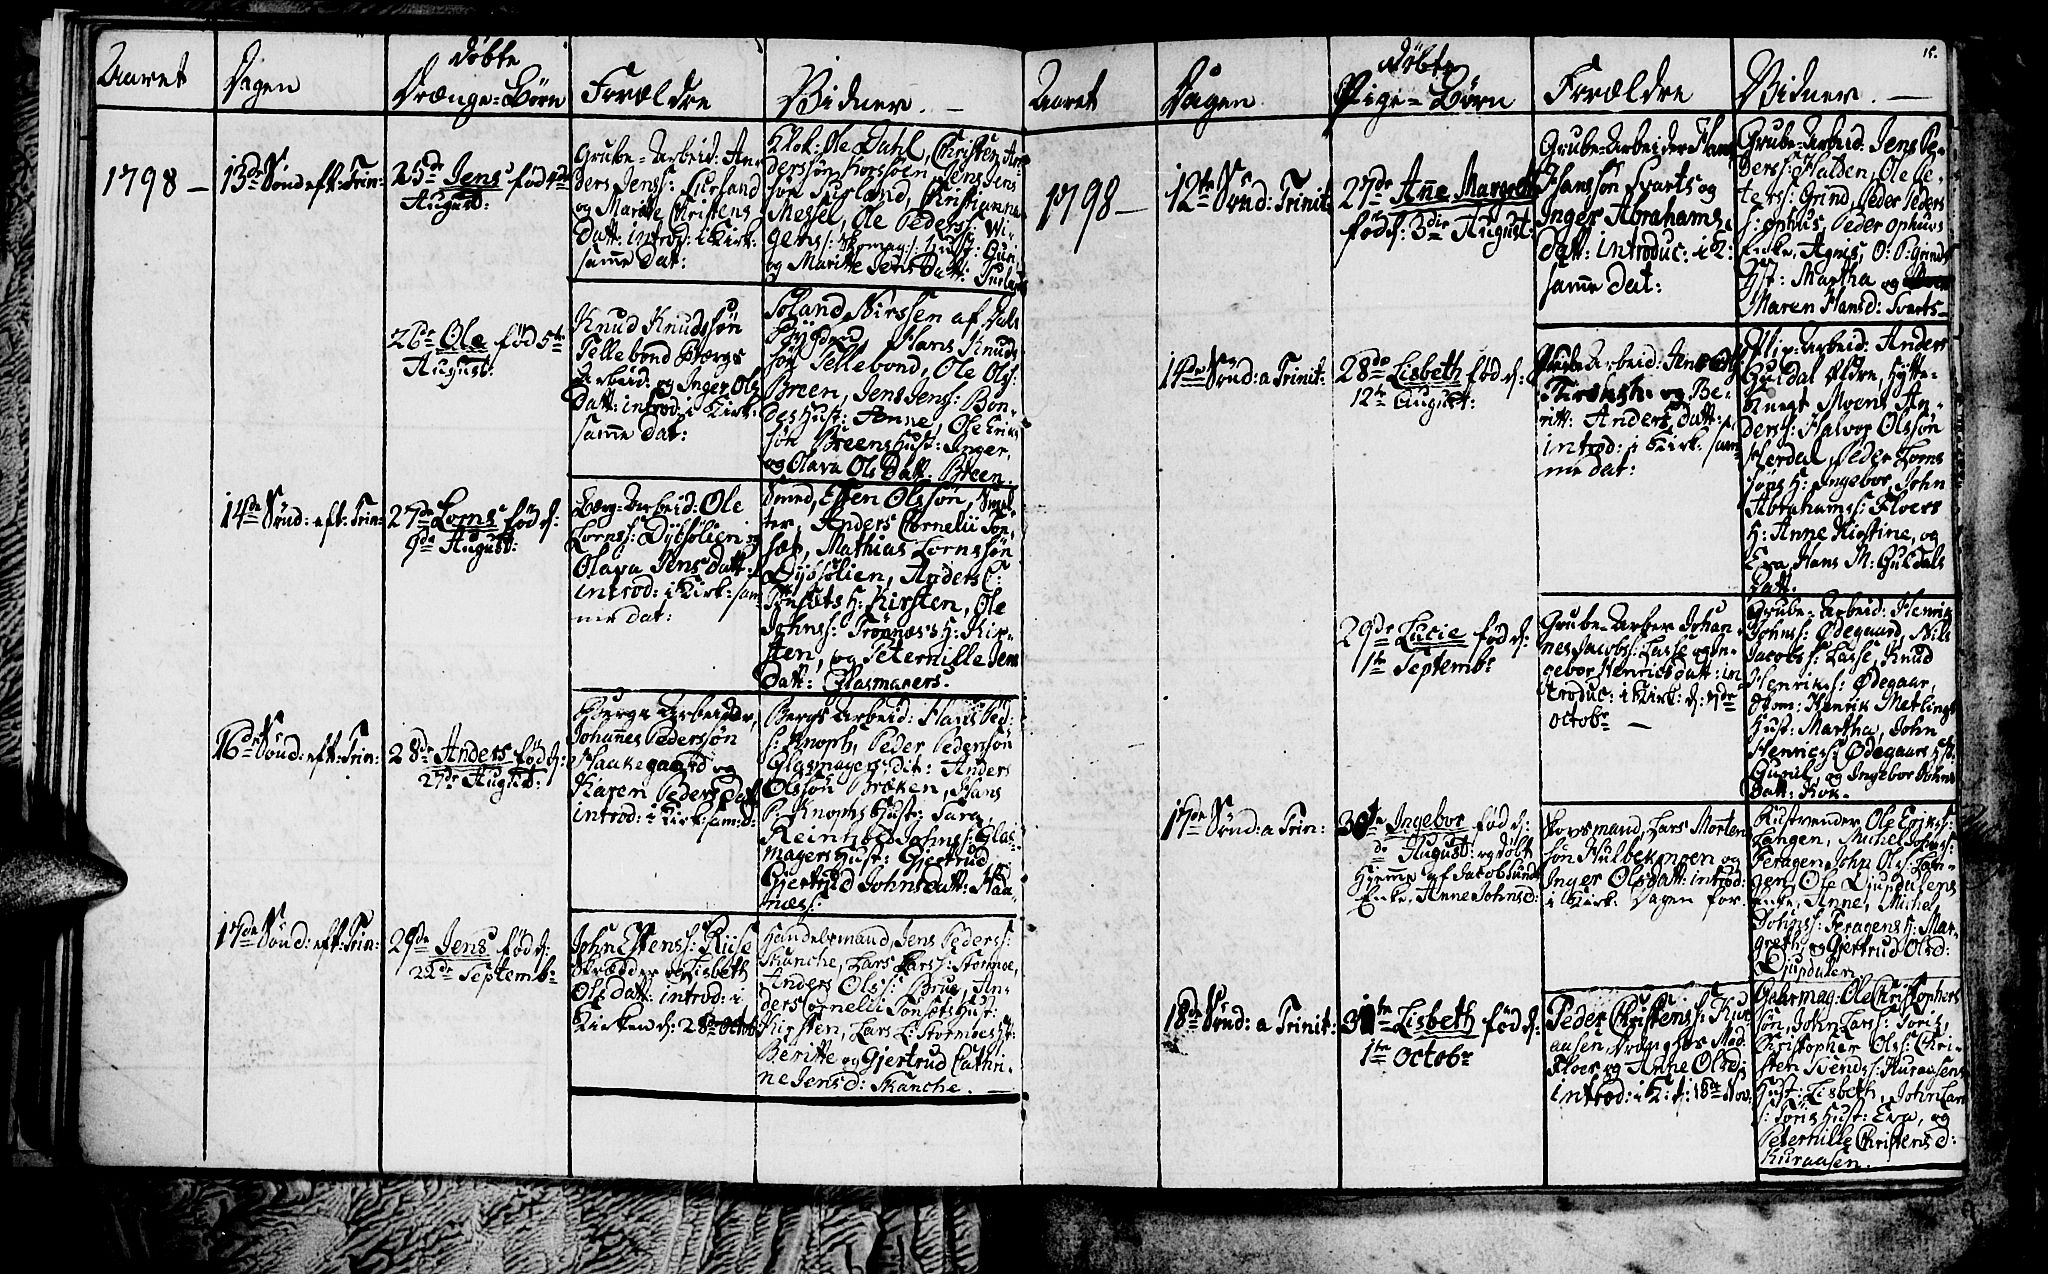 15.
Aaret
Dagen
døbte
Drænge-Børn
Forældre
Vidner. —
1798 —
13de Sønd eft: Trin:
25de Jens fød 1de
August:
Grube-Arbeid: An-
ders Jenss: Furland
og Maritte Christens
Datt: introd: i Kirk:
samme dat:
Klok: Ole Dahl, Christen An-
derssøn Korssøen, Jens Jens
søn Furland, Christianna
Messel, Ole Peders: Vi-
gens: Skomag: Hust: Guri
og Maritte Jens Datt: Furland
26de Ole fød 5te
August:
Knud Knudssøn
Tellebond Bergs
Arbeid: og Inger Ols
Datt: introd: i Kirk:
samme dat:
Bygden, Hans Knuds
søn Tellebond, Ole Ols:
Breen, Jens Jens: Bon-
des Hust: Anne, Ole Eriks
søn Breens Hust: Inger,
og Olava Ols Datt: Breen.
14de Sønd: eft: Trin:
27de Lorns fød d:
9de August:
Berg-Arbeid: Ole
Lornss: Dybsølien og
Olava Jens datt:
introd: i Kirk: sam-
me dat:
Smed, Esten Olssøn, Smel
ter, Anders Cornelii Ton
sæt, Mathias Lornssøn
Dybsølien, Anders C:
Tønsets H: Kirsten, Ole
Johns: Trønæss H: Kir-
sten, og Peternille Jens
Datt: Glasmagers.
16de Sønd: eft: Trin:
28de Anders fød d:
27de August:
Bergs Arbeider,
Johannes Pederssøn
Haakegaard og
Karen Peders datt
introd: i Kirk: sam: d:
Bergs Arbeid: Hans Ped:
s: Knoph, Peder Pederssøn
Glasmager, dit: Anders
Olssøn Bræken, Hans
P: Knophs Hust: Sara,
Reinhold Johns: Glas-
magers Hust: Gjertrud
Gjertrud Johns datt: Haa-
næs:
17de Sønd: eft: Trin:
29de Jens fød d:
22de Septembr
John Estenss: Riise
Skrædder og Lisbeth
Ols datt: introd: i
Kirken d: 28de Octob:
Handelsmand, Jens Peders:
Skanche, Lars Larss: Stormoe,
Anders Olss: Brue, An-
ders Cornelii Tonsets Hust:
Kirsten, Lars L: Stormoes H:
Beritte og Gjertrud Cathri-
ne Jens d: Skanche. —
Aaret
Dagen
døbte
Pige-Børn
Forældre
Vidner. —
1798 —
12te Sønd: Trinit:
27de Anne Margreth
fød d: 3die August:
Grube-Arbeider Hans
Hanssøn Svarts og
Inger Abrahams
Datt: introduc: i K:
samme dat:
Grube-Arbeid: Jens Pe-
ders: Halden, Ole Pe-
ters: Grind, Peder Peders
s: Ophus, Peder Ophuus
Enke, Agnis, O: P: Grinds
Hst: Martha og
Maren Hans d: Svarts —
14de Sønd: a Trinit:
28de Lisbeth fød d:
12te August:
Grube Arbeid: Jens Ols:
og Be-
ritt: Anders datt:
introd: i Kirk: sam-
me dat:
Anders
Guldal Ældre, Hytte-
Knegt Moens An-
ders: Halvor Olssøn
Hærdal, Peder Lorns
søns H: Ingebor, John
Abrahamss: Floers
H: Anne Kirstine, og
Eva Hans M: Guldals
Datt:
29de Lucie fød d:
1te Septembr
Grube-Arber Johan-
nes Jacobs: Lasse og In-
gebor Henrichs datt: in
troduc: i Kirk: d: 7de
Octobr —
Grube-Arbeid: Henrik
Johns: Ødegaard, Nils
Jacobs: Lasse, Knud
Henriks: Ødegaar,
Hust: Martha, John
Henrics: Ødegaars H:
Gunil, og Ingebor Johns
Datt: Kok.
17de Sønd: a Trin:
30te Ingebor fød d:
de August: og døbt
hjemme af Jacob Sunds
Enke, Anne Johns d:
Skovsmand, Lars Morten
søn Hulbekmoen og
Inger Ols datt: introd:
i Kirk: Dagen før
Ristvender Ole Eriks:
Langen, Michel Johns:
Feragen, John Ols: Lan-
gen, Ole Djupdalens
Enke, Anne, Michel
Johnss: Feragens H: Mar-
greth og Gjertrud Ols d:
Djupdalen.
18de Sønd: a Trinit:
31te Lisbeth fød d:
1te Octobr
Peder Christens: Kur
aasen, Dreng hos Mad.
Floer og Anne Ols d:
introd: i K: d: 18de Nov:
Gahrmag: Ole Christophers
søn, John Larss: Toris,
Christopher Ols: Chri-
sten Svends: Kuraasens
Hust: Lisbeth, John Lars
s: Toris Hust: Eva, og
Peternille Christens d:
Kuraasen.